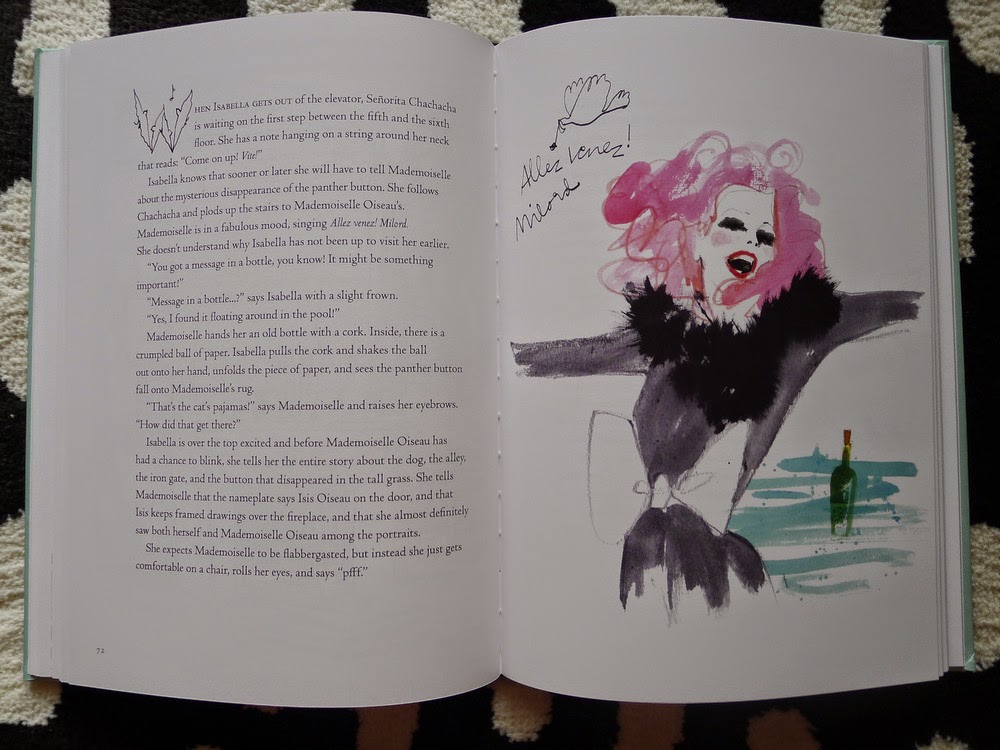 WHEN ISABELLA GETS OUT of the elevator, Señorita Chachacha
is waiting on the first step between the fifth and the sixth
floor. She has a note hanging on a string around her neck
that reads: “Come on up! Vite!”
Isabella knows that sooner or later she will have to tell Mademoiselle
about the mysterious disappearance of the panther button. She follows
Chachacha and plods up the stairs to Mademoiselle Oiseau’s.
Mademoiselle is in a fabulous mood, singing Allez venez! Milord.
She doesn’t understand why Isabella has not been up to visit her earlier.
“You got a message in a bottle, you know! It might be something
important!”
“Message in a bottle...?” says Isabella with a slight frown.
“Yes, I found it floating around in the pool!”
Mademoiselle hands her an old bottle with a cork. Inside, there is a
crumpled ball of paper. Isabella pulls the cork and shakes the ball
out onto her hand, unfolds the piece of paper, and sees the panther button
fall onto Mademoiselle’s rug.
“That’s the cat’s pajamas!” says Mademoiselle and raises her eyebrows.
“How did that get there?”
Isabella is over the top excited and before Mademoiselle Oiseau has
had a chance to blink, she tells her the entire story about the dog, the alley,
the iron gate, and the button that disappeared in the tall grass. She tells
Mademoiselle that the nameplate says Isis Oiseau on the door, and that
Isis keeps framed drawings over the fireplace, and that she almost definitely
saw both herself and Mademoiselle Oiseau among the portraits.
She expects Mademoiselle to be flabbergasted, but instead she just gets
comfortable on a chair, rolls her eyes, and says “pfff.”
72
Allez venez!
Milord